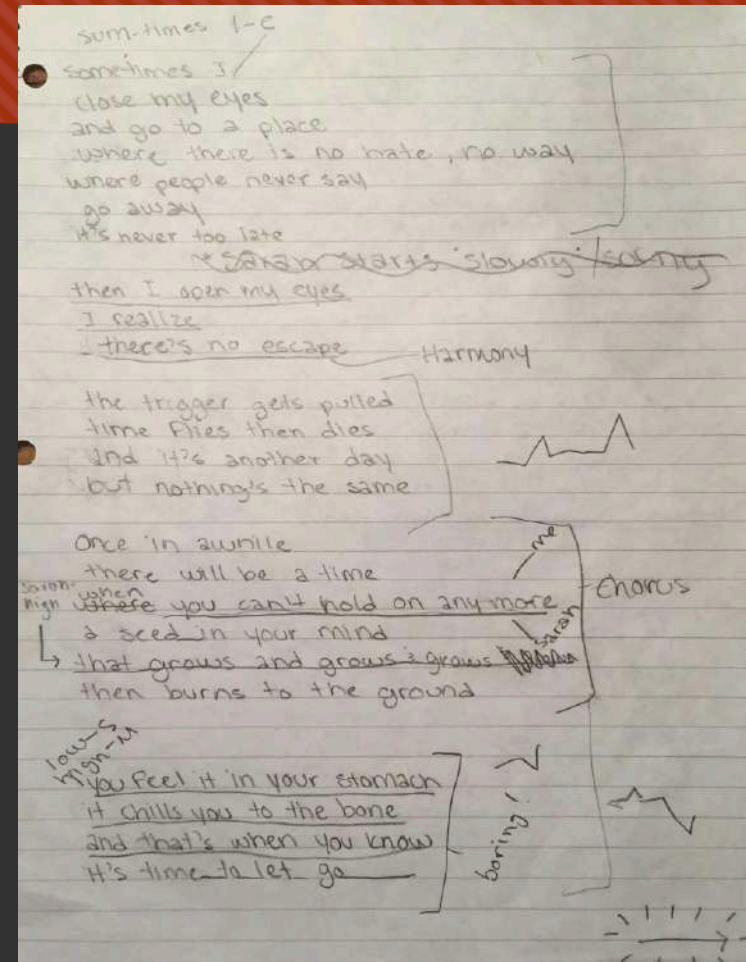 sum-times 1-e
sometimes I
close my eyes
and go to a place
where there is no hate, no way
where people never say
go away
it's never too late
Sarah starts slowly
then I open my eyes
I realize
there's no escape
Harmony
the trigger gets pulled
time flies then dies
and it's another day
but nothing's the same
Once in awhile
there will be a time
me
Chorus
when
high where you can't hold on any more
a seed in your mind
Sarah
that grows and grows & grows
then burns to the ground
low-S
high-M
you feel it in your stomach
it chills you to the bone
and that's when you know
it's time to let go
boring!